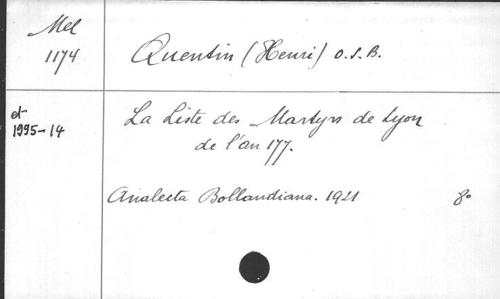 Mel
1174
Quentin (Henri) O.S.B.
et
1995-14
La Liste des Martyrs de Lyon
de l'an 177.
Analecta Bollandiana. 1921
8o